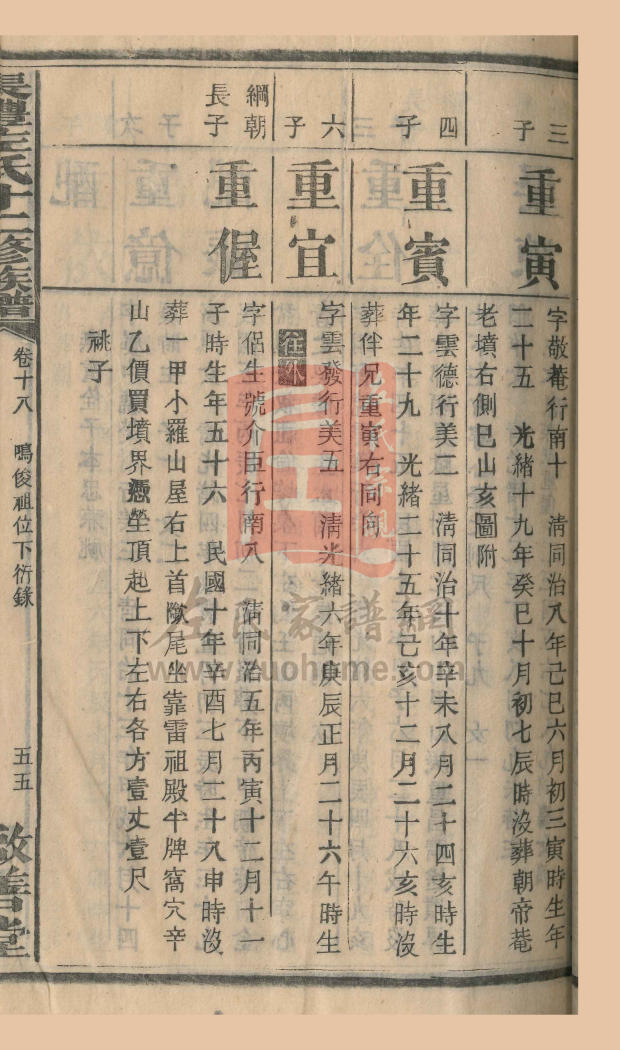 三子
重寅
字敬菴行南十 清同治八年己巳六月初三寅時生年
二十五 光緒十九年癸巳十月初七辰時沒葬朝帝菴
老墳右側巳山亥圖附
四子
重賓
字雲德行美二 清同治十年辛未八月二十四亥時生
年二十九 光緒二十五年己亥十二月二十六亥時沒
葬伴兄重寅右同向
六子
重宜
字雲發行美五 清光緒六年庚辰正月二十六午時生
在外
綱朝長子
重偓
字侶生號介臣行南八 清同治五年丙寅十二月十一
子時生年五十六 民國十年辛酉七月二十八申時沒
葬一甲小羅山屋右上首獺尾坐靠雷祖殿牛牌窩穴辛
山乙價買墳界憑塋頂起上下左右各方壹丈壹尺
祧子
長澧左氏十二修族譜
卷十八 鳴俊祖位下衍錄
五五
敬善堂
左氏宗親
左氏家譜網
www.zuohome.com